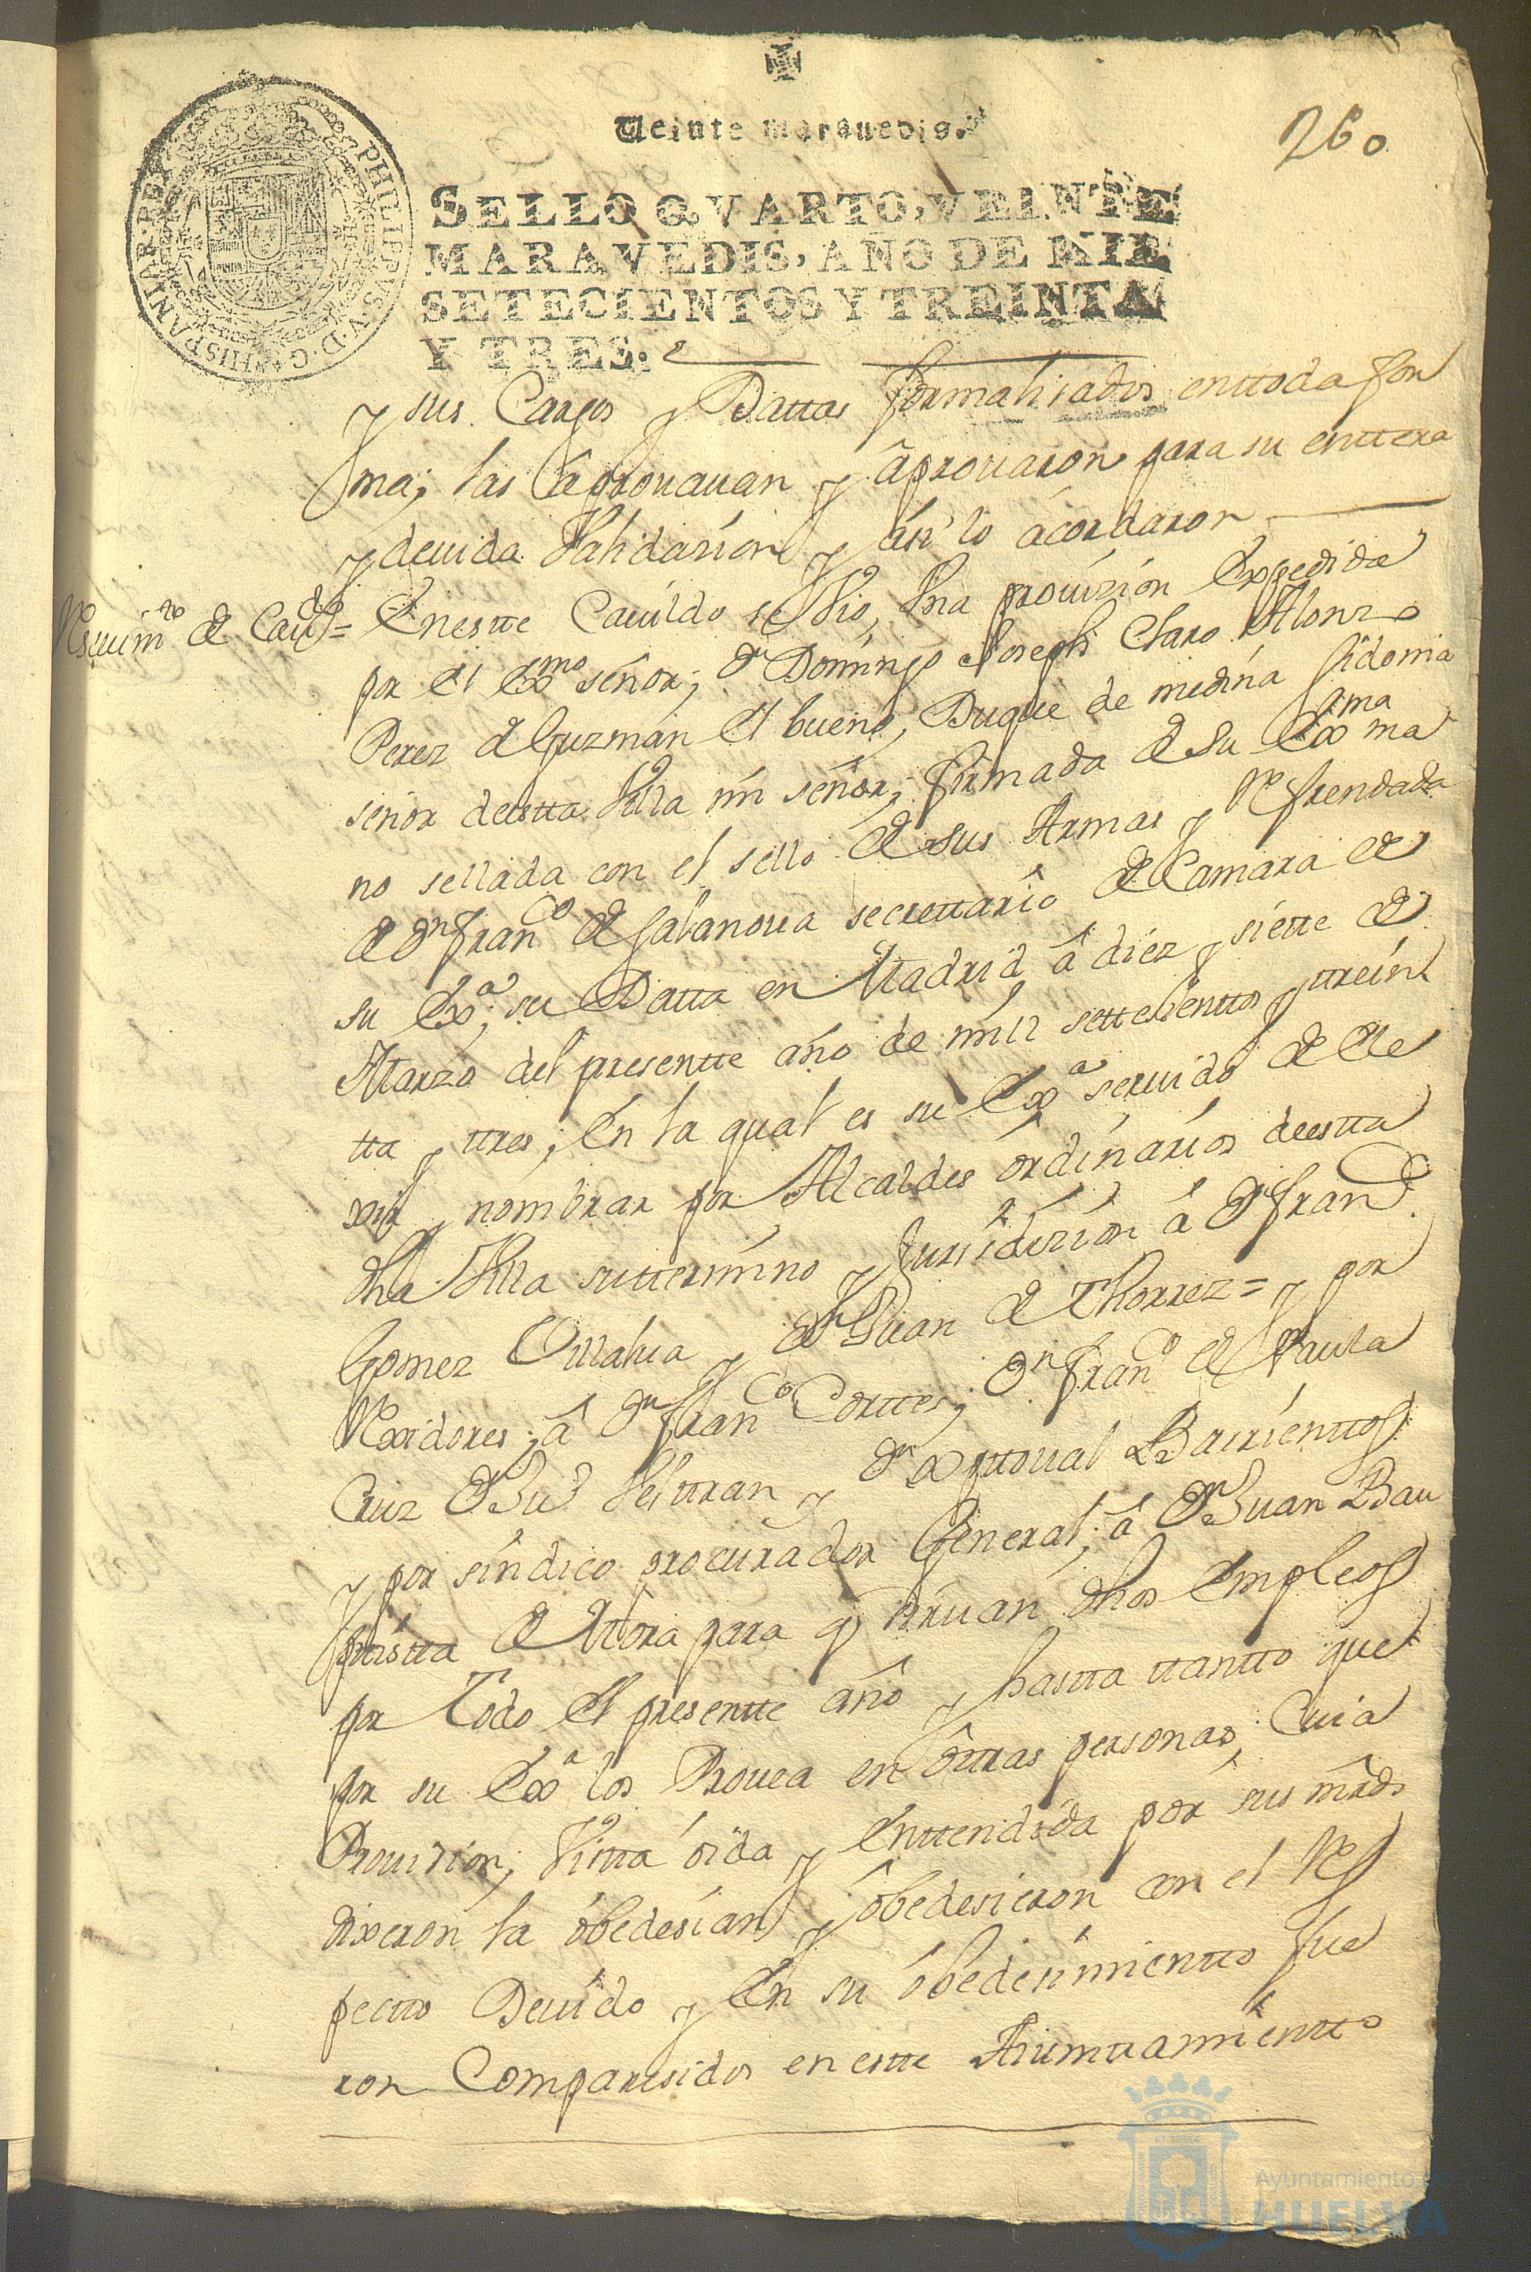 260
Veinte marauedis.
SELLO QVARTO, VEINTE
MARAVEDIS, AÑO DE MIL
SETECIENTOS Y TREINTA
Y TRES.
PHILIPPVS V D G HISPANIAR REX
y sus Cargos y Dattas formalisados enttoda for
ma; las âprouauan y âprouaron para su enttera
y deuida Validasíon y âsi lo âcordaron
Resuim.to de Cau.do =
Enestte Cauíldo se Vio, Vna prouizíon Expedida
por el Ex.mo señor; Dn Domíngo Joseph Claro Alonzo
Perez de Guzman El bueno, Duque de medína sidonia
señor deestta Villa mi señor; firmada de su Ex.ma ma
no sellada con el sello de sus Armas y Refrendada
de Dn fran.co de Casanoua secrettarío de Camara de
su Ex.a; su Datta en Madrid â díez y síette de
Marzo del presentte año de mill settesíenttos y treín
tta y ttres; En la qual es su Ex.a seruido de ele
xir y nombrar por Alcaldes ôrdínaríos deestta
dha Villa su ttermíno y Jurísdízíon â Dn fran.co
Gomez Villalua y Dn Juan de Thorrez = y por
Rexidores; â Dn fran.co Corttes; Dn fran.co de Paula
Cruz Dn Ju.o Belttran y Dn Xpttoual Barríenttos
y por síndíco procurador General; â Dn Juan Bau
ptístta de Mora para q síruan dhos Empleos
por Todo El presentte año y hastta ttantto que
por su Ex.a los Prouea en ôttras personas; Cuia
Prouisíon; Vístta oída y Enttendída por sus mrds
dixeron la ôbedesían y ôbedesieron con el Res
pectto Deuído y En su ôbedesímíentto fue
ron Comparesidos en estte Aiunttamíentto
Ayuntamiento de
HUELVA